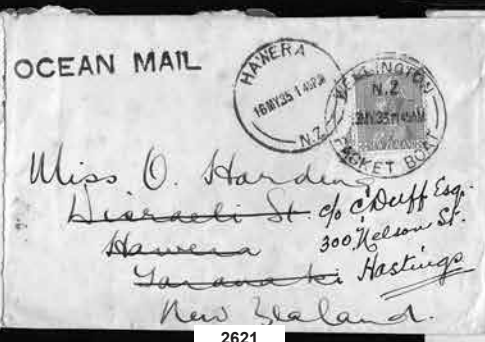 OCEAN MAIL
HAWERA
16MY35 1 45PM
N.Z.
WELLINGTON
N.Z.
MY35 11 45AM
PACKET BOAT
Miss O. Harding
Disraeli St. c/o C. Duff Esq.
Hawera 300, Nelson St.
Taranaki Hastings
New Zealand.
2621